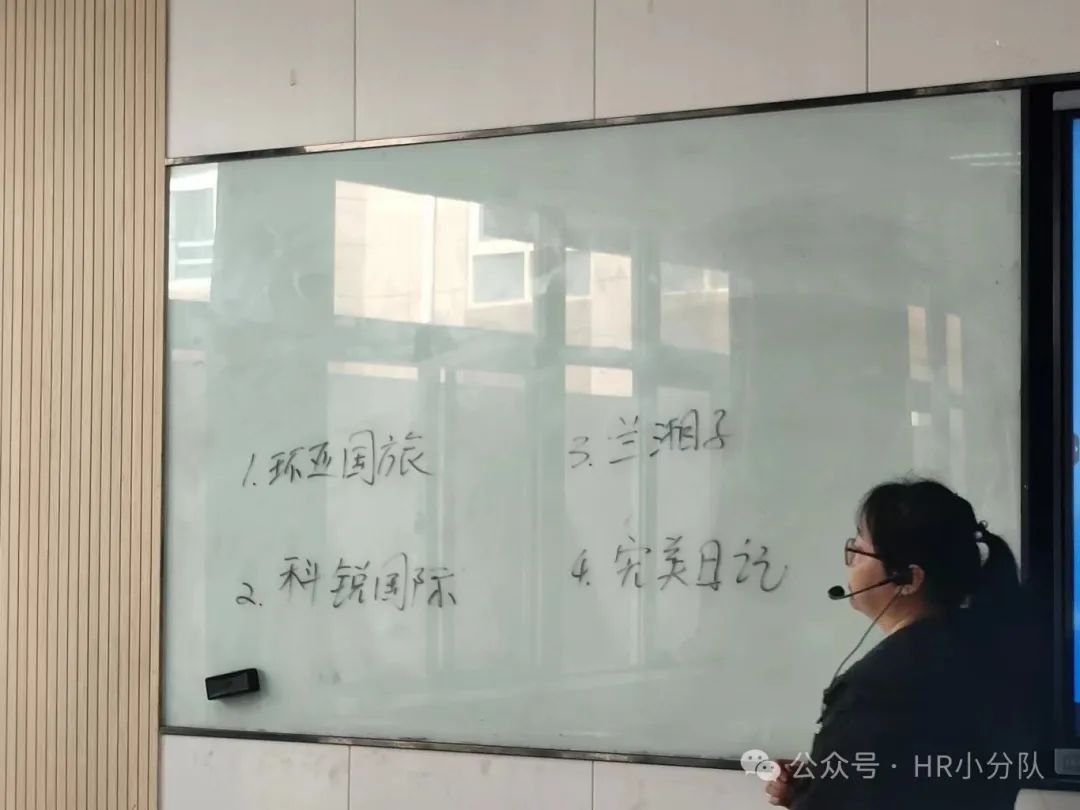 1. 环亚国旅
2. 科锐国际
3. 兰湘子
4. 完美日记
公众号 · HR小分队